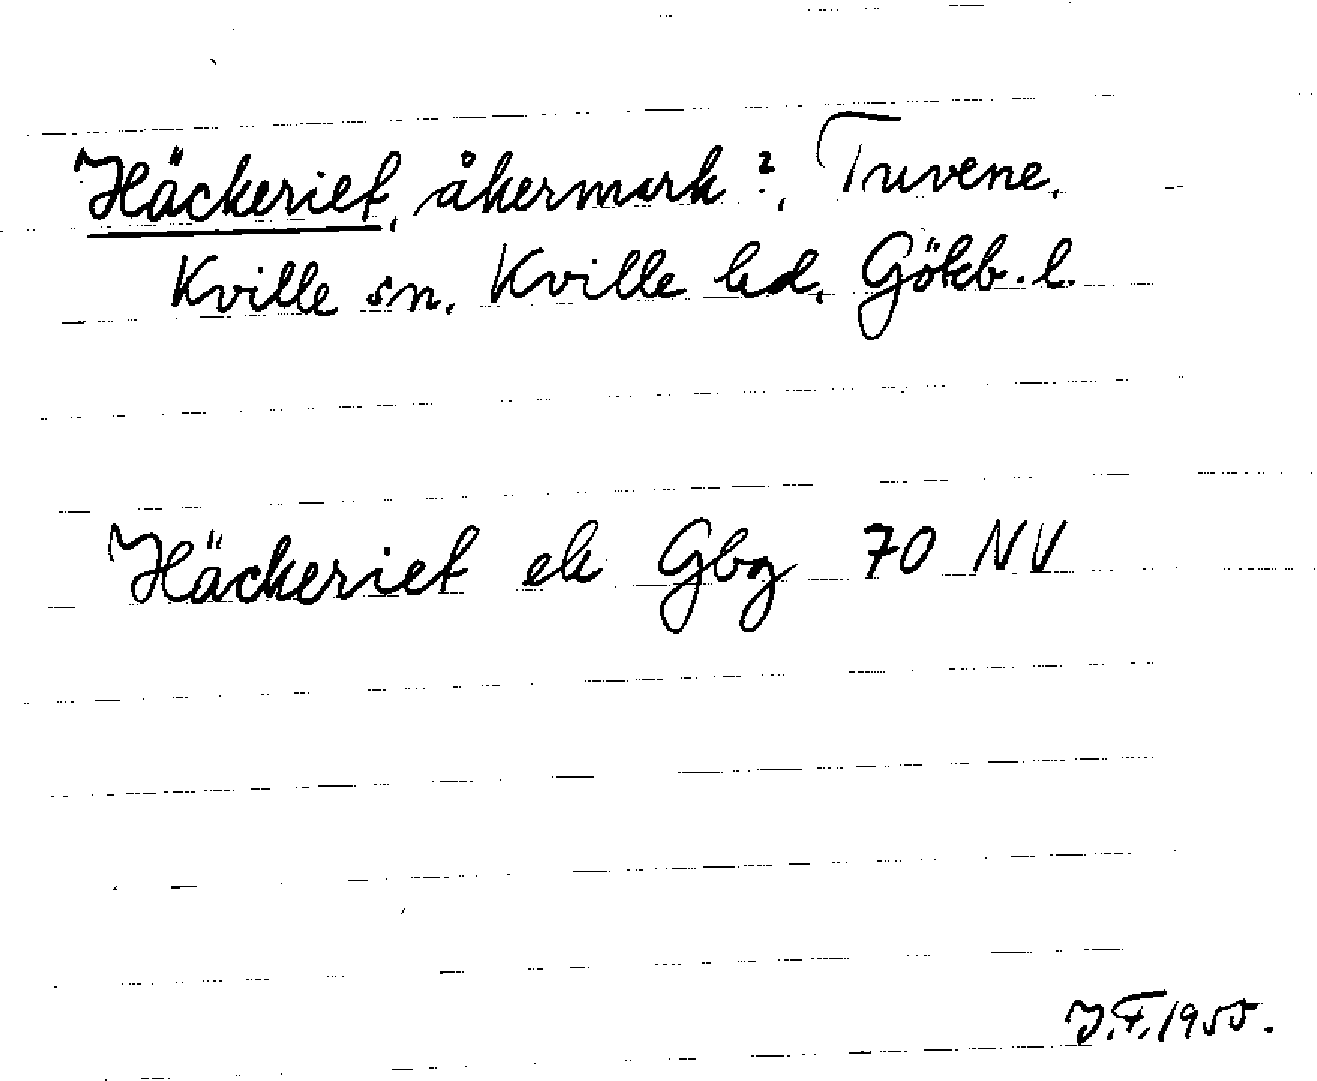 Häckeriet, åkermark?, Truvene,
Kville sn. Kville hd, Göteb. l.
Häckeriet ek Gbg 70 NV
J.F. 1955.